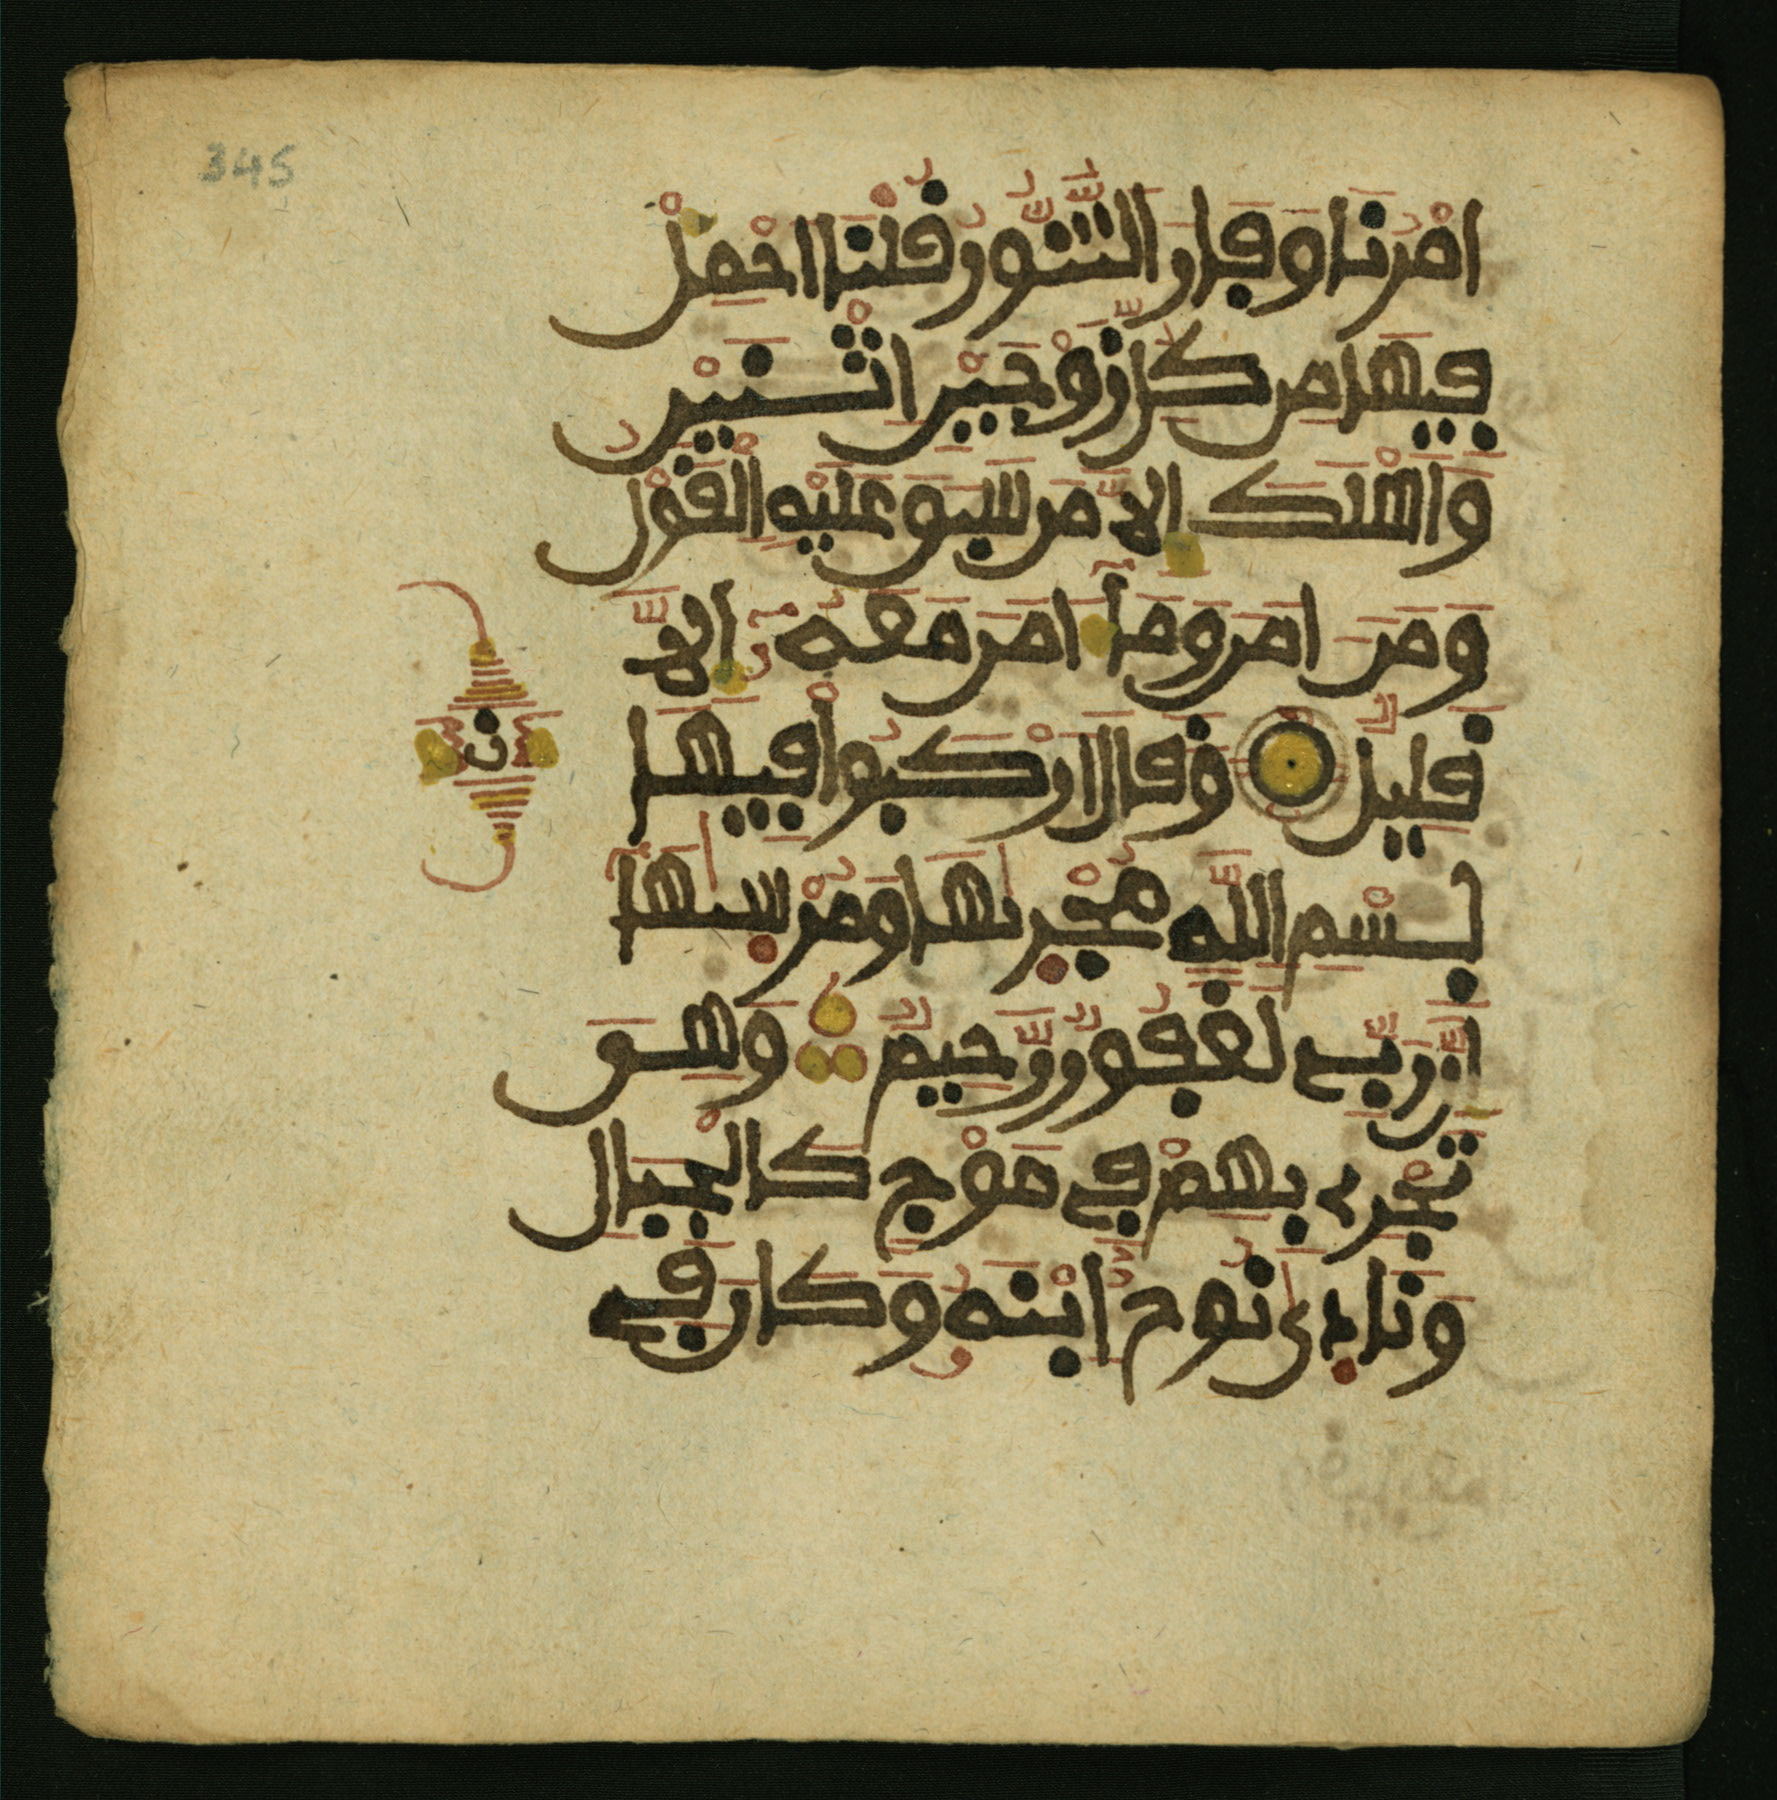 345
امْرُنَا وَفَارَ التَّنُّورُ قُلْنَا احْمِلْ
فِيهَا مِن كُلِّ زَوْجَيْنِ اثْنَيْنِ
وَاَهْلَكَ إِلاَّ مَن سَبَقَ عَلَيْهِ الْقَوْلُ
وَمَنَ امَنَ وَمَآ ءَامَنَ مَعَهُۥٓ إِلاَّ
قَلِيلٌ وَقَالَ ارْكَبُوا فِيهَا
ن
بِسْمِ اللَّهِ مُجْر۪ىٰهَا وَمُرْس۪ىٰهَآ
إِنَّ رَبِّے لَغَفُورٌ رَّحِيمٌ وَهِىَ
تَجْرِے بِهِمْ فِے مَوْجٍ كَالْجِبَالِ
وَنَاد۪ىٰ نُوحٌ اِبْنَهُۥ وَكَانَ فِے